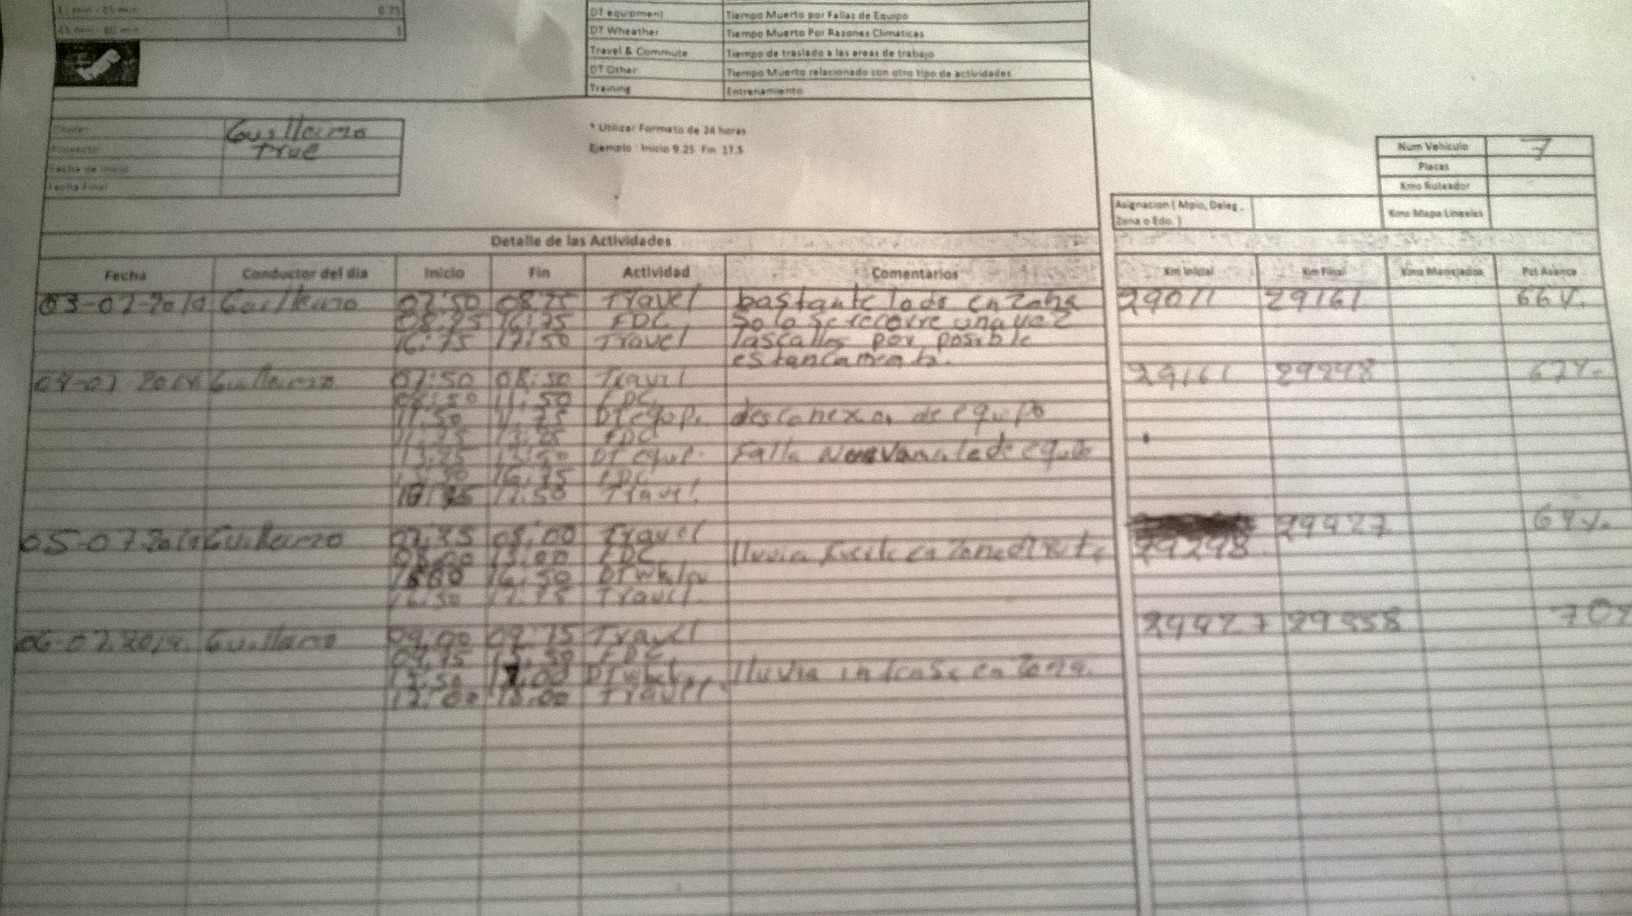 0.75
1
DT equipment Tiempo Muerto por Fallas de Equipo
DT Wheather Tiempo Muerto Por Razones Climáticas
Travel & Commute Tiempo de traslado a las areas de trabajo
DT Other Tiempo Muerto relacionado con otro tipo de actividades
Training Entrenamiento
Guillermo
True
Fecha de Inicio
Fecha Final
* Utilizar Formato de 24 horas
Ejemplo : Inicio 9.25 Fin 17.5
Num Vehiculo 7
Placas
Kms Ruteador
Kms Mapa Lineales
Asignacion ( Mpio, Deleg,
Zona o Edo. )
Detalle de las Actividades
Fecha Conductor del dia Inicio Fin Actividad Comentarios Km Inicial Km Final Kms Manejados Pct Avance
03-07-2014 Guillermo 07:50 08:75 Travel bastante lodo en zona 29011 29161 66%
08:75 16:75 FDC Solo se recorre una vez
16:75 17:50 Travel las calles por posible
estancamento.
04-07 2014 Guillermo 07:50 08:50 Travel 29161 29298 67%
08:50 11:50 FDC
11:50 11:75 DT equp. desconexion de equipo
11:75 13:25 FDC
13:25 13:50 DT equp. Falla de equipo
13:50 16:75 FDC
16:75 17:50 Travel
05-07.2014 Guillermo 08:00 Travel 29427 69%
08:00 13:00 FDC lluvia fuerte en zona 29298
16:50 DT Whler
16:50 17:75 Travel
06-07.2014. Guillermo 09:00 09:75 Travel 29427 29558 70%
09:75 15:50 FDC
15:50 17:00 DT lluvia intensa en zona.
17:00 18:00 Travel